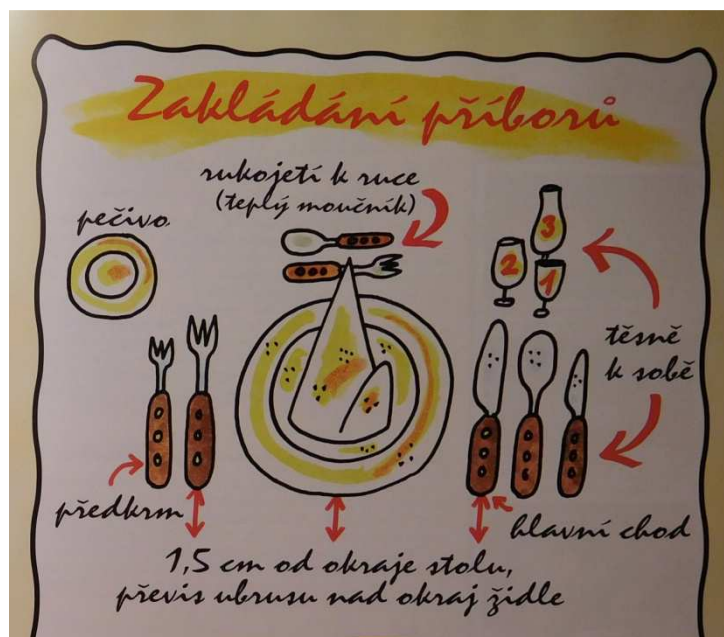 Zakládání příborů
rukojetí k ruce
(teplý moučník)
pečivo
3
2
1
těsně
k sobě
předkrm
hlavní chod
1,5 cm od okraje stolu,
převis ubrusu nad okraj židle